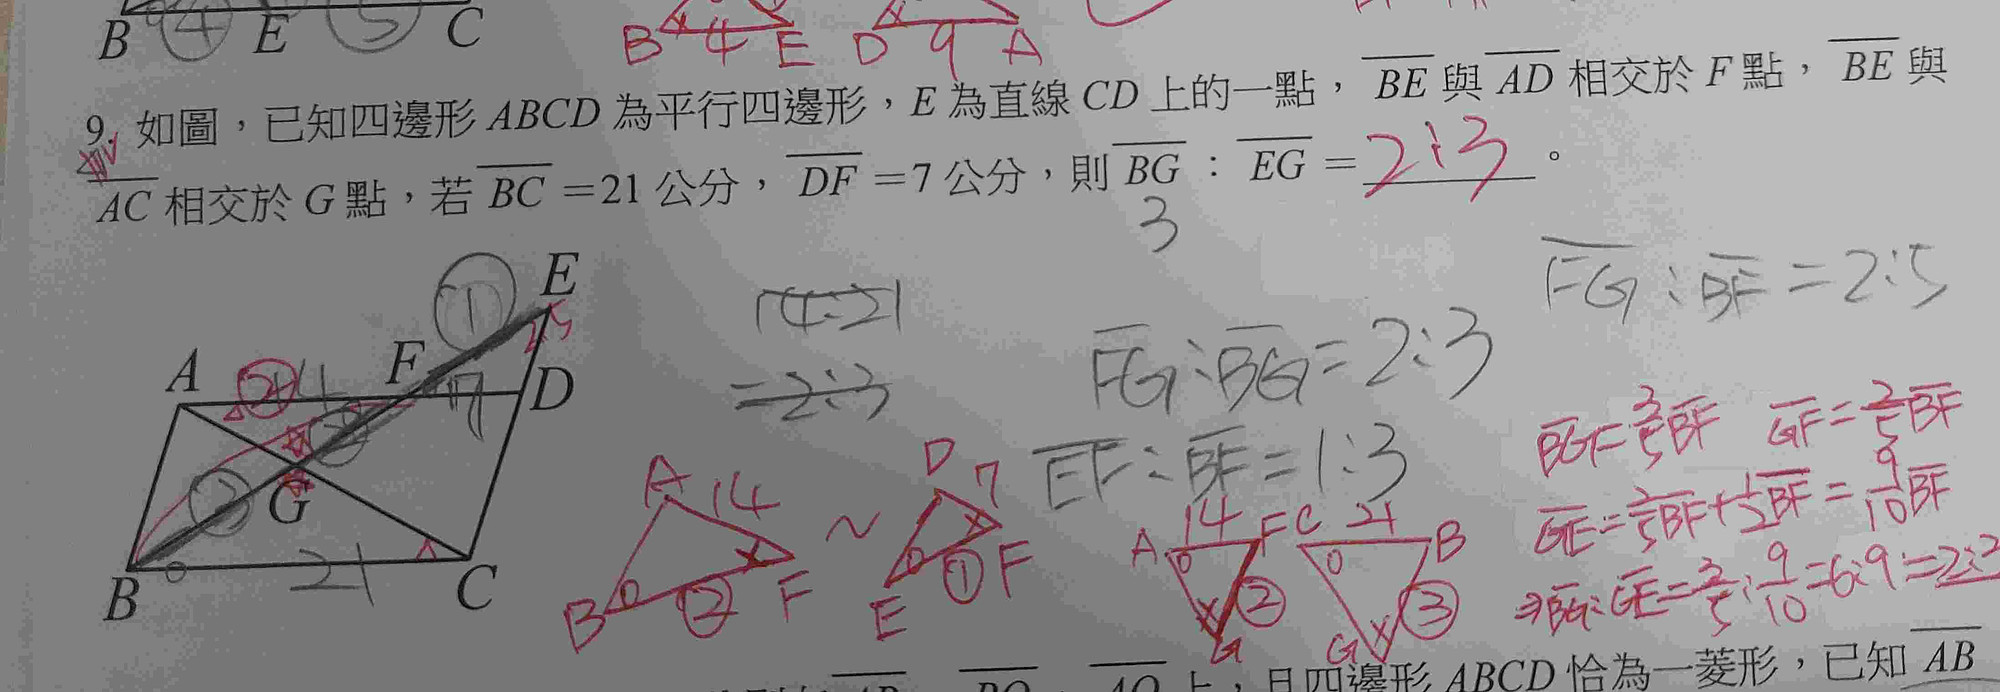 B 4 E 5 C
B 4 E D 9 A
9. 如圖，已知四邊形 ABCD 為平行四邊形，E 為直線 CD 上的一點，BE 與 AD 相交於 F 點，BE 與
AC 相交於 G 點，若 BC =21 公分，DF =7 公分，則 BG : EG = 2:3 。
3
E
1
A 2 14 F 7 D
2.5
3
G
B 21 C
14:21
=2:3
FG:BG=2:3
FG:BF=2:5
EF:BF=1:3
A 14 B 2 F ~ D 7 E 1 F
A 14 F 2 G
C 21 B 3 G
BG=3/5BF GF=2/5BF
GE=2/5BF+1/2BF=9/10BF
⇒BG:GE=3/5:9/10=6:9=2:3
上，且四邊形 ABCD 恰為一菱形，已知 AB